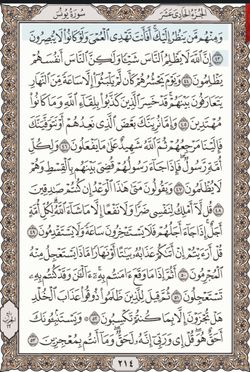 الجزء الحادي عشر سورة يونس
وَمِنْهُم مَّن يَنظُرُ إِلَيْكَ أَفَأَنتَ تَهْدِى ٱلْعُمْىَ وَلَوْ كَانُوا۟ لَا يُبْصِرُونَ
٤٣ إِنَّ ٱللَّهَ لَا يَظْلِمُ ٱلنَّاسَ شَيْـًٔا وَلَٰكِنَّ ٱلنَّاسَ أَنفُسَهُمْ
يَظْلِمُونَ ٤٤ وَيَوْمَ يَحْشُرُهُمْ كَأَن لَّمْ يَلْبَثُوٓا۟ إِلَّا سَاعَةً مِّنَ ٱلنَّهَارِ
يَتَعَارَفُونَ بَيْنَهُمْ قَدْ خَسِرَ ٱلَّذِينَ كَذَّبُوا۟ بِلِقَآءِ ٱللَّهِ وَمَا كَانُوا۟
مُهْتَدِينَ ٤٥ وَإِمَّا نُرِيَنَّكَ بَعْضَ ٱلَّذِى نَعِدُهُمْ أَوْ نَتَوَفَّيَنَّكَ
فَإِلَيْنَا مَرْجِعُهُمْ ثُمَّ ٱللَّهُ شَهِيدٌ عَلَىٰ مَا يَفْعَلُونَ ٤٦ وَلِكُلِّ
أُمَّةٍ رَّسُولٌ فَإِذَا جَآءَ رَسُولُهُمْ قُضِىَ بَيْنَهُم بِٱلْقِسْطِ وَهُمْ
لَا يُظْلَمُونَ ٤٧ وَيَقُولُونَ مَتَىٰ هَٰذَا ٱلْوَعْدُ إِن كُنتُمْ صَٰدِقِينَ
٤٨ قُل لَّآ أَمْلِكُ لِنَفْسِى ضَرًّا وَلَا نَفْعًا إِلَّا مَا شَآءَ ٱللَّهُ لِكُلِّ أُمَّةٍ
أَجَلٌ إِذَا جَآءَ أَجَلُهُمْ فَلَا يَسْتَـْٔخِرُونَ سَاعَةً وَلَا يَسْتَقْدِمُونَ ٤٩
قُلْ أَرَءَيْتُمْ إِنْ أَتَىٰكُمْ عَذَابُهُۥ بَيَٰتًا أَوْ نَهَارًا مَّاذَا يَسْتَعْجِلُ مِنْهُ
ٱلْمُجْرِمُونَ ٥٠ أَثُمَّ إِذَا مَا وَقَعَ ءَامَنتُم بِهِۦٓ ءَآلْـَٰٔنَ وَقَدْ كُنتُم بِهِۦ
تَسْتَعْجِلُونَ ٥١ ثُمَّ قِيلَ لِلَّذِينَ ظَلَمُوا۟ ذُوقُوا۟ عَذَابَ ٱلْخُلْدِ
هَلْ تُجْزَوْنَ إِلَّا بِمَا كُنتُمْ تَكْسِبُونَ ٥٢ وَيَسْتَنۢبِـُٔونَكَ
أَحَقٌّ هُوَ قُلْ إِى وَرَبِّىٓ إِنَّهُۥ لَحَقٌّ وَمَآ أَنتُم بِمُعْجِزِينَ ٥٣
٢١٤